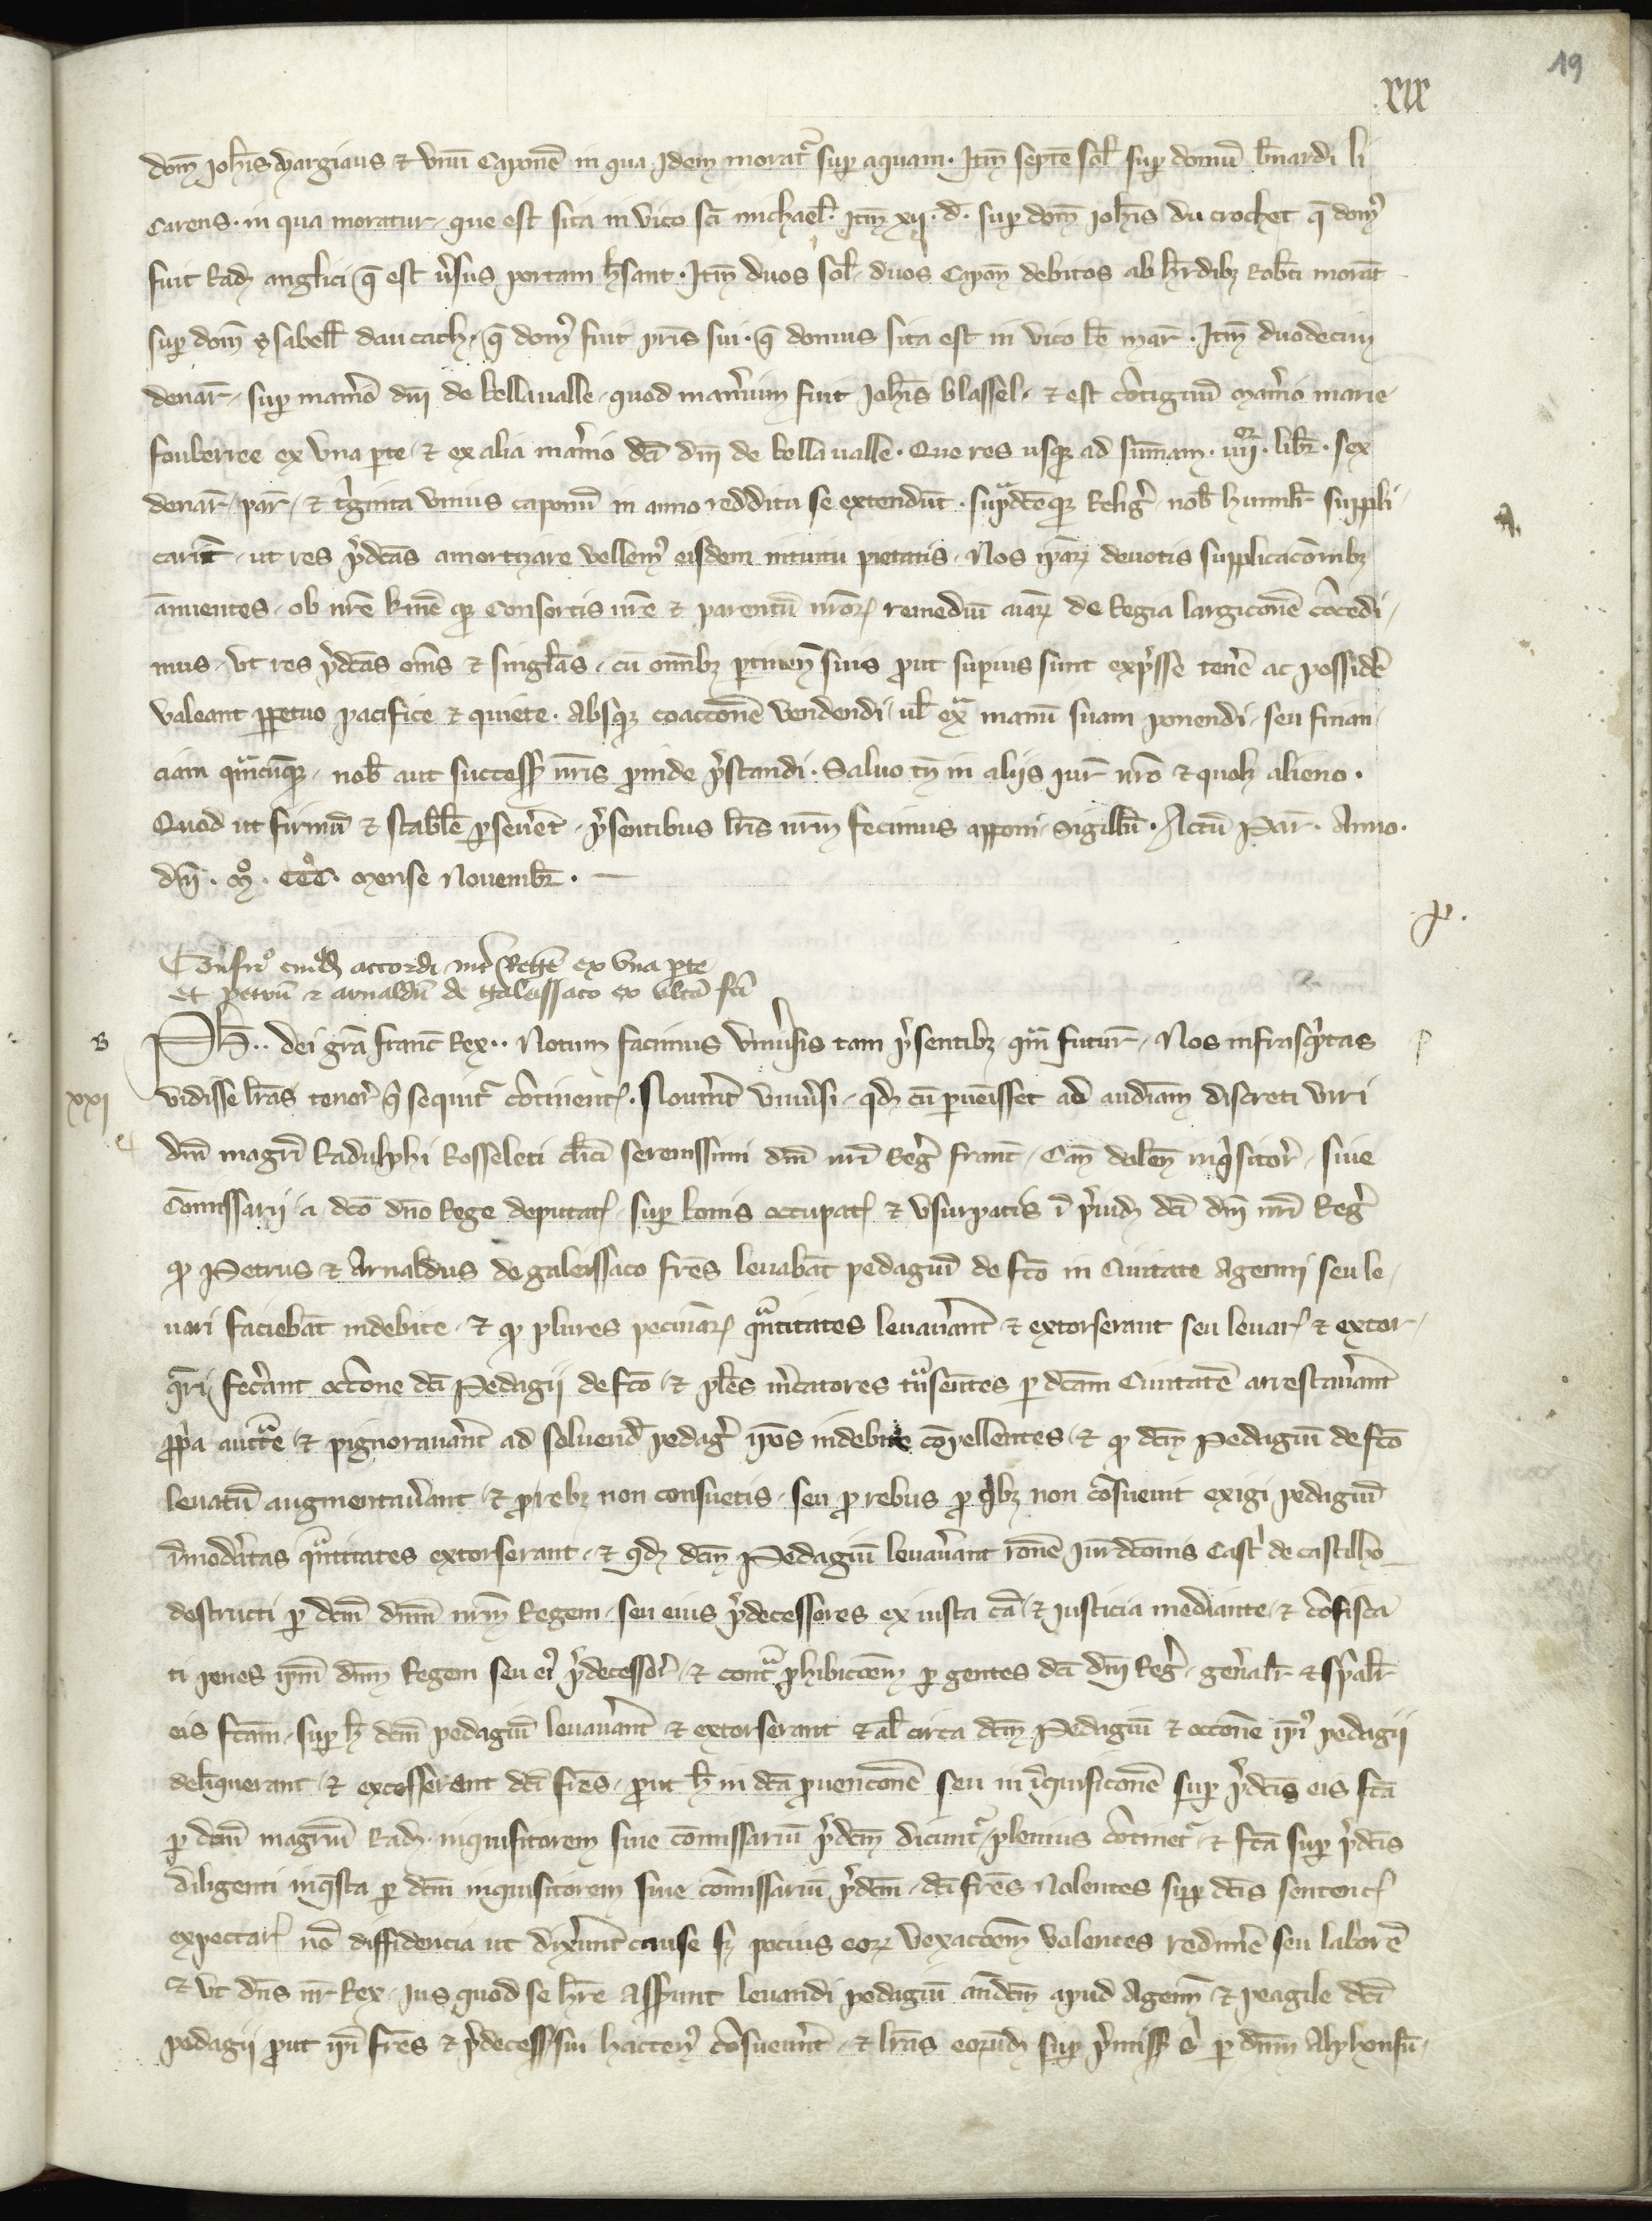 19
xix
dom̄ Joh̄is dyargiaus ⁊ vnū Caponē in qua Idem morat᷑ sup aquam. Itm̄ septē sol̄ sup domū b̄nardi li
Carens. in qua moratur, que est sita in vico sc̄i michael̄. Itm̄ xij. d̄. sup dom̄ Joh̄is du crochet q̄ dom᷒
fuit Rad̄ anglici q̄ est v̓sus portam h̄sant. Itm̄ duos sol̄. duos Capon̄ debitos ab h̄rdib᷒ Rob̄ti morāt
sup dom̄ ysabell̄ daucach, q̄ dom᷒ fuit pr̄is sui. q̄ domus sita est in vico b̄e mar̄. Itm̄ duodecim
denar̄. sup man̄io dn̄i de bellaualle, quod man̄ium fuit Joh̄is blassel. ⁊ est cōtiguū man̄io marie
fouberree ex vna pte. ⁊ ex alia man̄io dc̄i dn̄i de bella ualle. Que res usq᷒ ad sūmam. iiij.or libr̄. sex
denar̄. par̄. ⁊ t'ginta vnius caponū in anno redditu se extendūt. sup̄dc̄eq᷒ Relig̓. nob̄ humil̄r suppli,
carūt, ut res p̓dc̄as amortizare vellem᷒ eisdem intuitu pietatis. Nos ip̄ar̄ deuotis supplicacōnib᷒
annuentes, ob nr̄e b̄mē q᷒ Consortis nr̄e ⁊ parentū nr̄or̄ remediū aīar̄ de Regia largicōne cōcedi,
mus, vt res p̓dc̄as om̄s ⁊ sinḡlas, cū omīb᷒ ptinen̄ suis put supius sunt exp̓sse ten̄e ac possidē
valeant ppetuo pacifice ⁊ quiete. Absq᷒ coaccōne vendendi, ul̄ ext̃ manū suam ponendi, seu finan,
ciam qūcūq᷒, nob̄ aut success̄ nr̄is pinde p̓standi. Saluo tn̄ in alijs iur̄ nr̄o ⁊ quol᷒ alieno.
Quod ut firmū ⁊ stab̄le pseu̓et, p̓sentibus lr̄is nr̄m fecimus apponi Sigillū. Actū Par̄. Anno.
dn̄i. mº. CCCº. mense Nouembr̄.
p.
Cōfirº cuiusd̄ accordi int̓ Regē ex vna pte
Et petrū ⁊ arnaldū de galeissaco ex altā fc̄i
B
Ph̄.. dei gr̄a franc̄ Rex.. Notum facimus vniu̓sis tam p̓sentib᷒ qm̄ futur̄, Nos infrasc̓ptas
xxi
vidisse lr̄as tenor̄ q̓ sequit᷑ cōtinent̄. Nou̓int vniu̓si, qd̄ cū puēisset ad audiām discreti viri
dn̄i magr̄i Radulphi Rosseleti cl̄ici serenissimi dn̄i nr̄i Reg̓ franc̄, Can̄ dolen̄ inq̓sitor̄, siue
Cōmissarij a dc̄o dn̄o Rege deputat̄ sup bonis occupat̄ ⁊ vsurpatis ī p̓iud̄ dc̄i dn̄i nr̄i Reg̓
q̊ Petrus ⁊ Arnaldus de galeissaco fr̄es leuabāt pedagiū de fc̄o in Ciuitate Agenni seu le,
uari faciebāt indebite. ⁊ q̊ plures pecūiar̄ q̃ntitates leuau̓ant ⁊ extorserant seu leuar̄ ⁊ extor,
q̄ri fec̓ant occōne dc̄i Pedagij de fc̄o. ⁊ pl̄es m̓catores t̃nseūtes p dc̄am Ciuitatē arrestau̓ant
p̄pa auct̄te ⁊ pignorauan̄t ad soluend̄ pedag̓ ip̄os indebite cōpellentes. ⁊ q̊ dc̄m Pedagiū de fc̄o
leuatū augmentau̓ant. ⁊ p reb᷒ non consuetis, seu p rebus p q̓b᷒ non cōsueuit exigi pedagiū
īmod̓atas q̃ntitates extorserant. ⁊ qd̄ dc̄m Pedagiū leuau̓ant rōne Iurdc̄ōnis Cast̓ de castilho
destructi p dc̄m dn̄m nr̄m Regem, seu eius p̓decessores ex iusta cā, ⁊ iusticia mediante, ⁊ cōfisca
ti penes ip̄m dn̄m Regem seu ei᷒ p̓decessor̄. ⁊ cont̃ phibicōem p gentes dc̄i dn̄i Reg̓. gen̓alr̄ ⁊ sp̄alr̄
eis fc̄am, sup h̄ dc̄m pedagiū leuau̓ant ⁊ extorserant ⁊ al̄ circa dc̄m Pedagiū ⁊ occōne ip̄i᷒ pedagij
deliquerant. ⁊ excesserant dc̄i fr̄es, put h̄ in dc̄a p̄uencōne seu in īquisicōne sup p̓dc̄is eis fc̄a
p dc̄m magr̄m Rad̄. inquisitorem siue cōmissariū p̓dc̄m dicunt᷑ plenius cōtinet᷑. ⁊ fc̄a sup p̓dc̄is
diligenti inq̓sta p dc̄m inquisitorem siue cōmissariū p̓dc̄m. dc̄i fr̄es Nolentes sup dc̄is sentenc̄
expectar̄ nō diffidencia ut dixerūt cause s᷒ pocius eor̄ vexacōem volentes redim̓e seu laborē
⁊ ut dn̄s nr̄ Rex. Ius quod se h̄re Ass̓unt leuandi pedagiū an̄dc̄m apud Agenn̄ ⁊ peagile dc̄i
pedagij put ip̄i fr̄es ⁊ p̓decess̄ sui hacten᷒ cōsueu̓int. ⁊ lr̄as eorūd̄ sup p̓miss̄ s̓ p dn̄m Alphonsū.